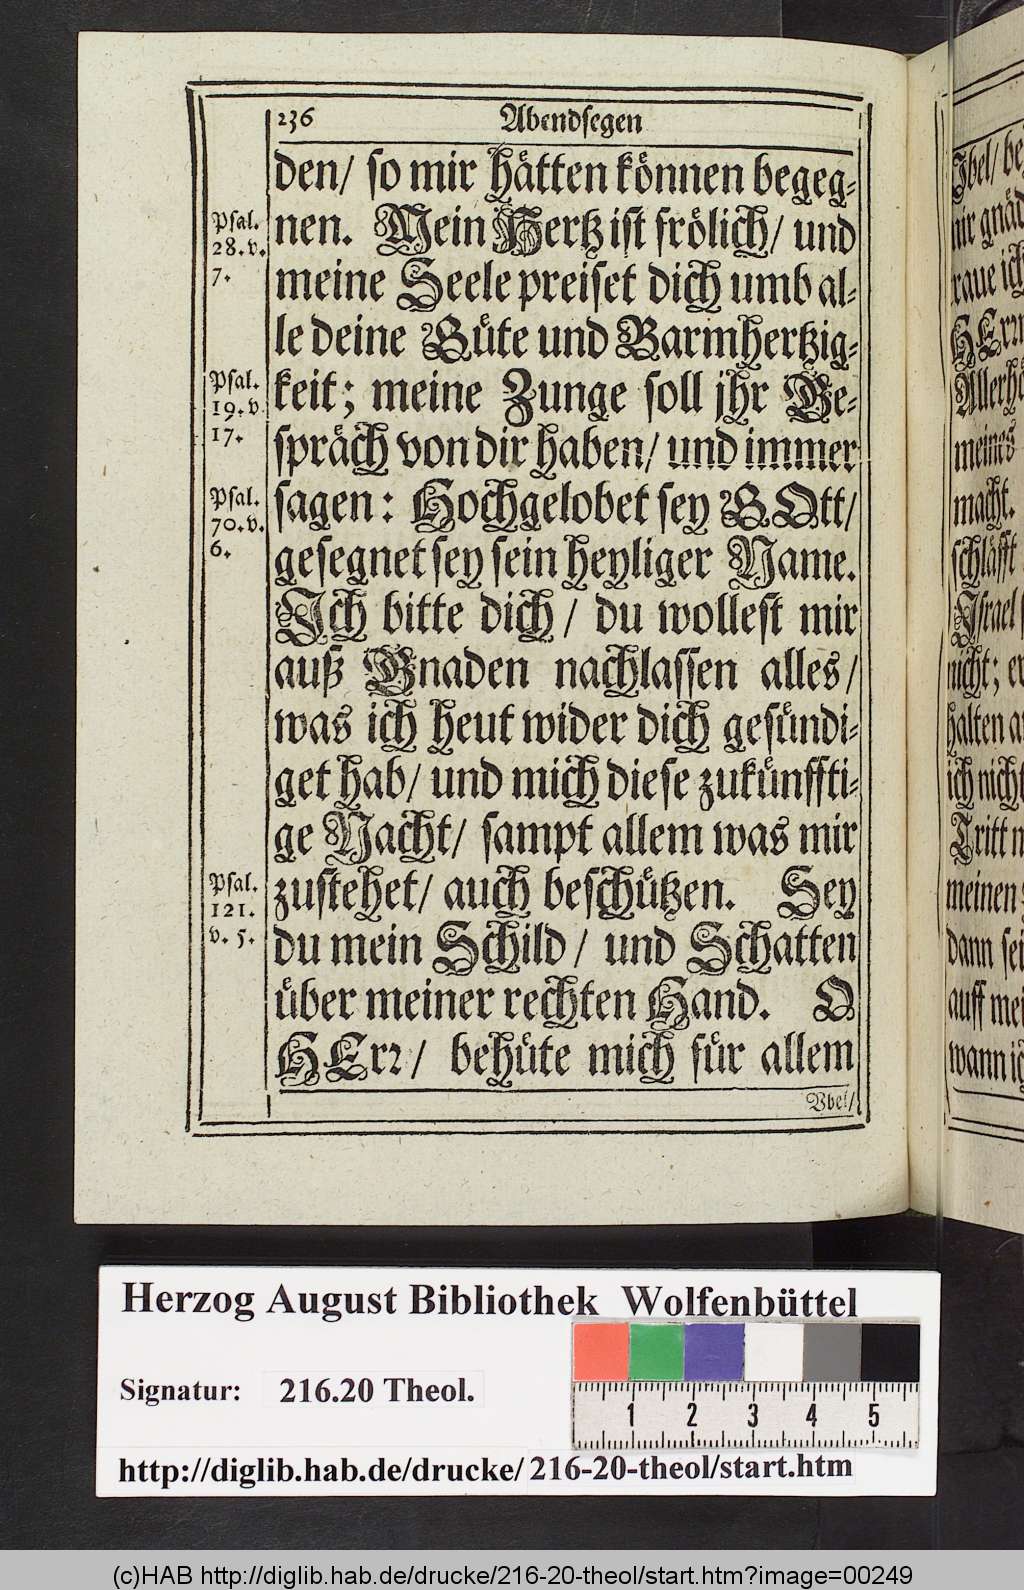 236 Abendsegen
den/ so mir hätten können begeg-
nen. Mein Hertz ist frölich/ und
meine Seele preiset dich umb al-
le deine Güte und Barmhertzig-
keit; meine Zunge soll jhr Ge-
spräch von dir haben/ und immer
sagen: Hochgelobet sey GOtt/
gesegnet sey sein heyliger Name.
Ich bitte dich/ du wollest mir
auß Gnaden nachlassen alles/
was ich heut wider dich gesündi-
get hab/ und mich diese zukünffti-
ge Nacht/ sampt allem was mir
zustehet/ auch beschützen. Sey
du mein Schild/ und Schatten
über meiner rechten Hand. O
HErr/ behüte mich für allem
Vbel/
Psal.
28. v.
7.
Psal.
19. v
17.
Psal.
70. v.
6.
Psal.
121.
v. 5.
Vbel/ be
mir gnäd
raue ich
HErr
Allerhö
meines
macht.
schläfft
Israel
nicht; er
halten
ich nicht
Tritt
meinen
dann sei
auff mei
wann ich
Herzog August Bibliothek Wolfenbüttel
Signatur: 216.20 Theol.
1 2 3 4 5
http://diglib.hab.de/drucke/216-20-theol/start.htm
(c)HAB http://diglib.hab.de/drucke/216-20-theol/start.htm?image=00249